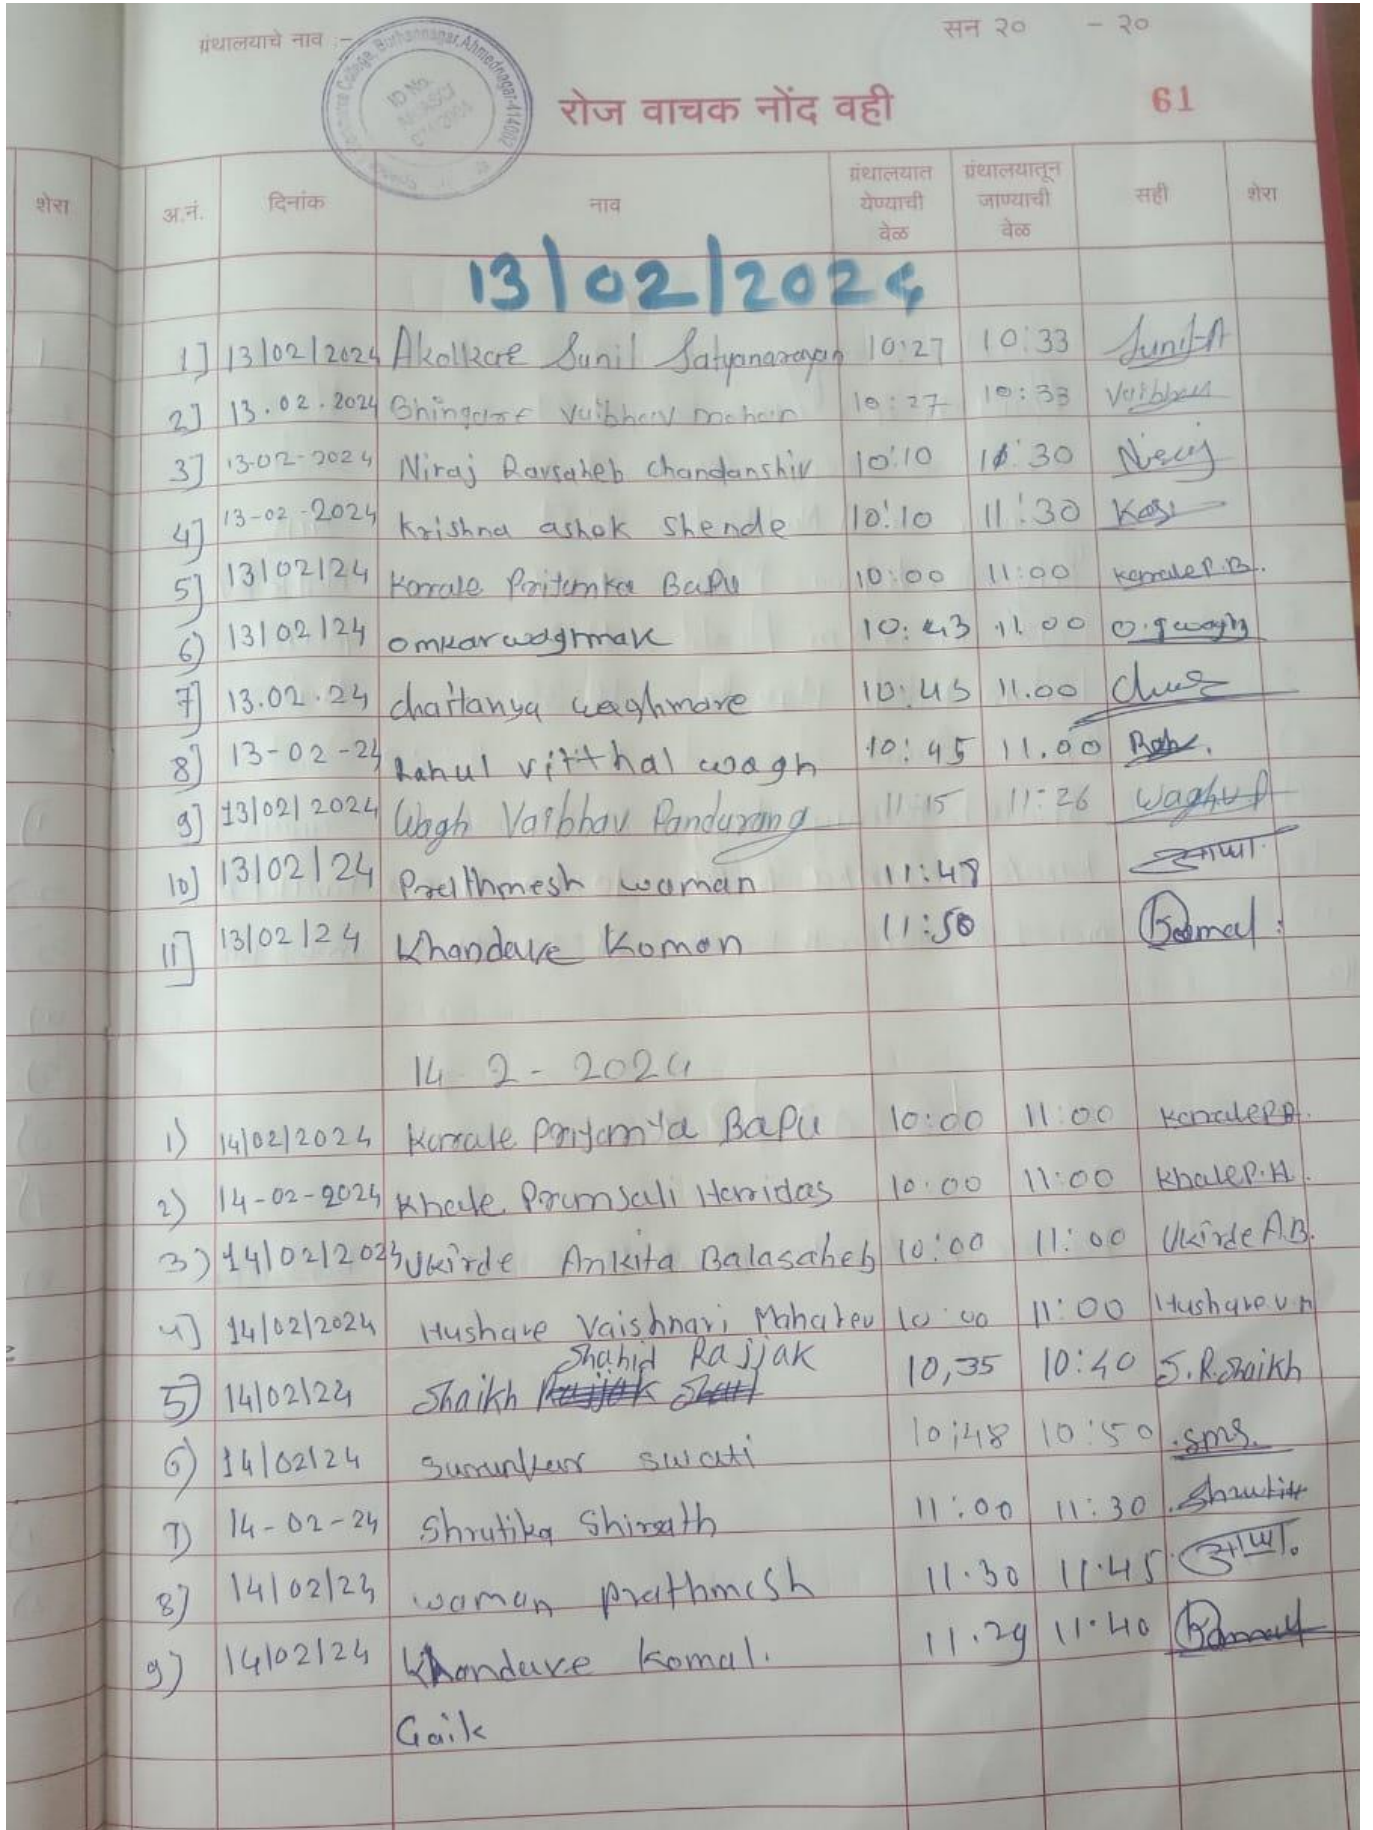 ग्रंथालयाचे नाव :-
सन २० - २०
College, Burhannagar, Ahmednagar-414002
ID No.
रोज वाचक नोंद वही
61
शेरा
अ.नं. दिनांक नाव ग्रंथालयात येण्याची वेळ ग्रंथालयातून जाण्याची वेळ सही शेरा
13/02/2024
1] 13/02/2024 Akolkar Sunil Satyanarayan 10:27 10:33 Sunil-A
2] 13.02.2024 Bhingare Vaibhav mohan 10:27 10:33 Vaibhav
3] 13-02-2024 Niraj Ravsaheb Chandanshiv 10:10 11:30 Niraj
4] 13-02-2024 Krishna ashok Shende 10:10 11:30
5] 13/02/24 Karale Priyanka Bapu 10:00 11:00 KaraleP.B.
6) 13/02/24 omkar waghmare 10:43 11.00 O.g wagh
7] 13.02.24 chaitanya waghmare 10:45 11.00
8) 13-02-24 Rahul vitthal wagh 10:45 11.00
9] 13/02/2024 Wagh Vaibhav Pandurang 11:15 11:26 WaghVP
10] 13/02/24 Prathmesh waman 11:48
11] 13/02/24 Khandave Koman 11:50 Komal
14-2-2024
1) 14/02/2024 Karale Priyanka Bapu 10:00 11:00 KaraleP.B.
2) 14-02-2024 Khale Haridas 10:00 11:00 KhaleP.H.
3) 14/02/2024 Ukirde Ankita Balasaheb 10:00 11:00 Ukirde A.B.
4] 14/02/2024 Hushare Vaishnavi Mahadev 10:00 11:00 Hushare.V.M
Shahid Rajjak
5) 14/02/24 Shaikh 10,35 10:40 S.R.Shaikh
6) 14/02/24 Swati 10:48 10:50 .sms.
7) 14-02-24 Shrutika Shirsath 11:00 11:30 Shrutika
8) 14/02/24 waman prathmesh 11.30 11.45
9) 14/02/24 Khandave Komal. 11.29 11.40 Komal
Gaik